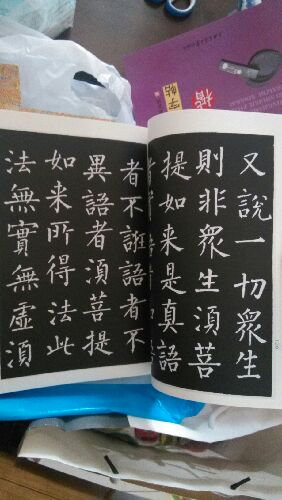 又說一切衆生
則非衆生湏菩
提如来是真語
者不誑語者不
異語者湏菩提
如来所得法此
法無實無虛湏
楷
字帖